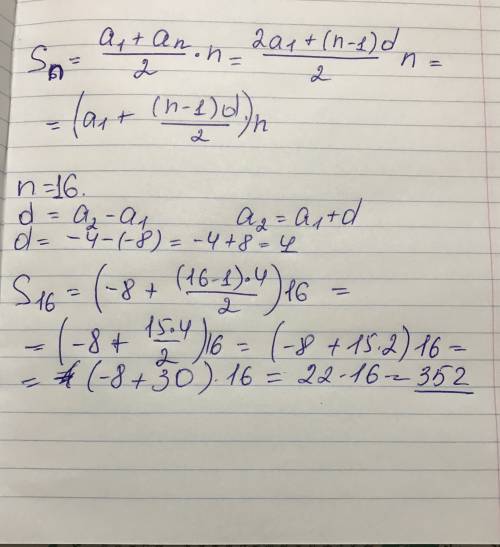 Sn = (a1 + an)/2 · n = (2a1 + (n-1)d)/2 n =
= (a1 + (n-1)d/2)n
n=16.
d = a2 - a1 a2 = a1+d
d= -4-(-8) = -4+8 = 4
S16 = (-8 + (16-1)·4/2)16 =
= (-8 + 15·4/2)16 = (-8 + 15·2)16 =
= (-8+30)·16 = 22·16 = 352